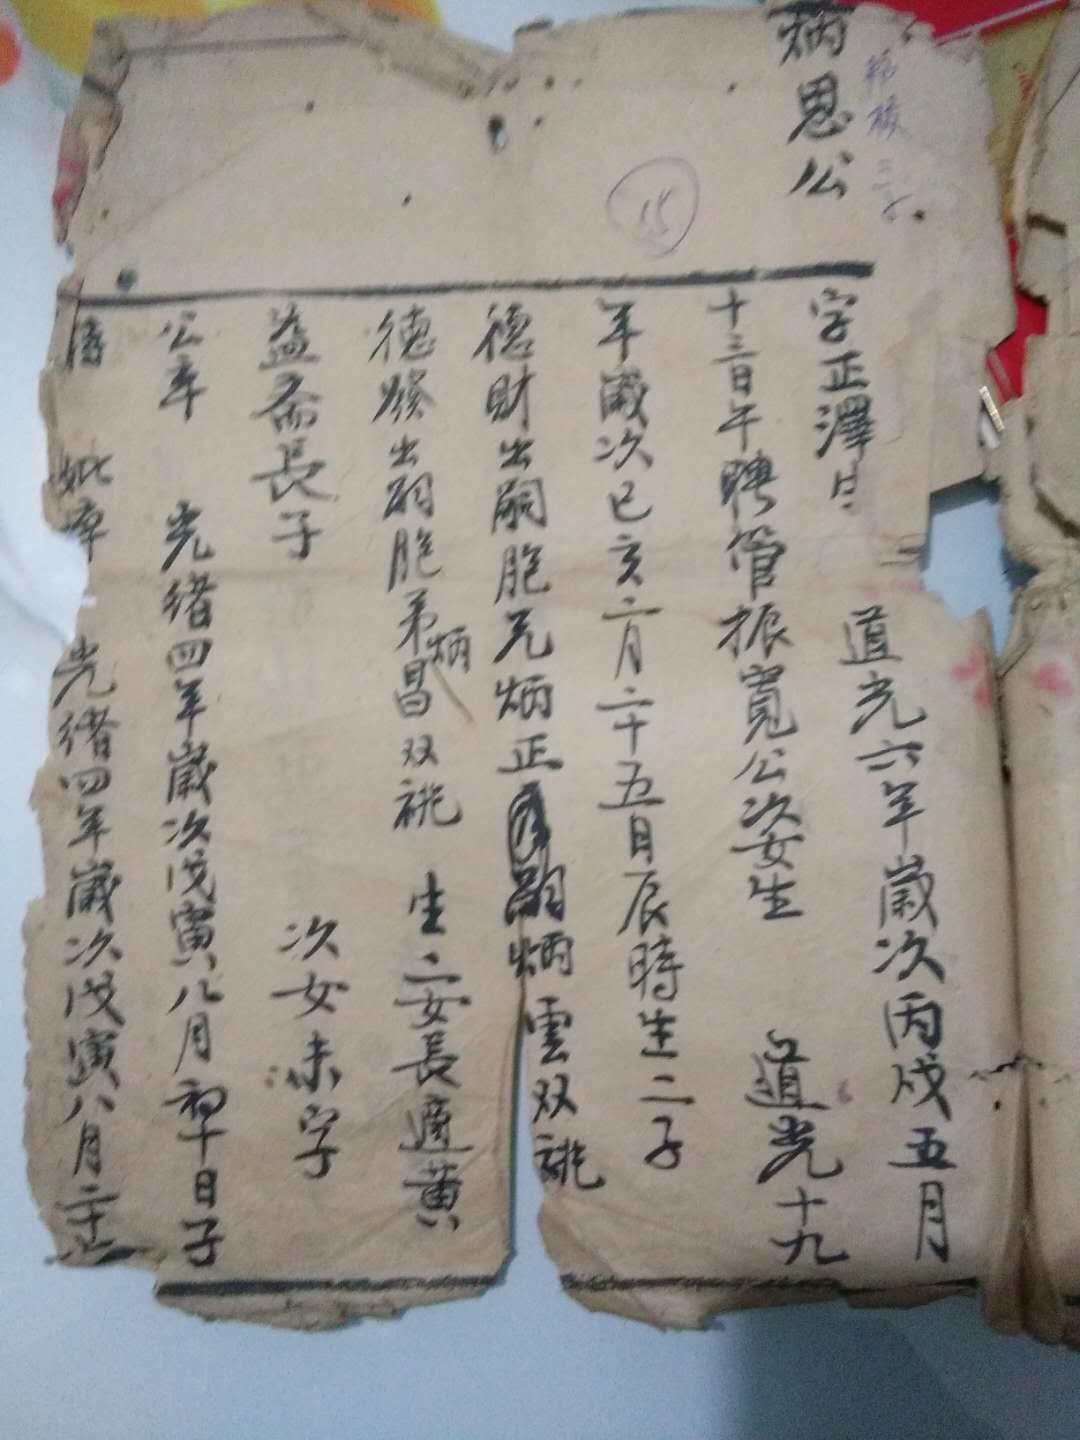 炳恩公
15
字正澤 道光六年歲次丙戌五月
十三日午聘管振寬公次女生 道光十九
年歲次已亥二月二十五日辰時生二子
德財出嗣胞兄炳正嗣炳雲双祧
德發出嗣胞弟炳昌双祧 生二女長適黄
益斋長子 次女未字
公卒 光緒四年歲次戊寅八月初十日子
妣卒 光緒四年歲次戊寅八月二十